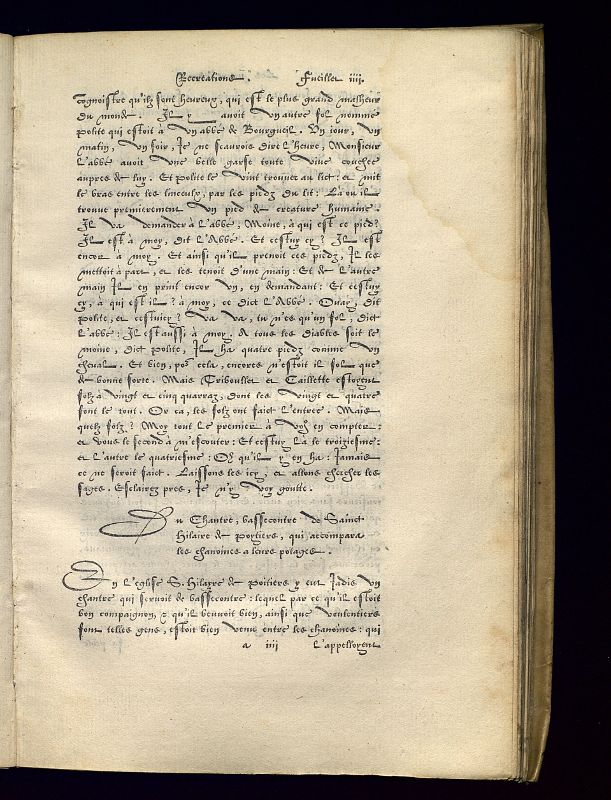 Recreations. Fueillet iiii.
cognoistre qu'ilz sont heureux, qui est le plus grand malheur
du monde. Il y avoit vn autre fol nommé
Polite qui estoit à vn abbé de Bourgueil. Vn iour, vn
matin, vn soir, Ie ne scaurois dire l'heure, Monsieur
l'abbé avoit vne belle garse toute vive couchee
aupres de luy. Et Polite le vint trouver au lict: et mit
le bras entre les linceulx, par les piedz du lit: Là ou il
trouve premierement vn pied de creature humaine.
Il va demander à l'abbé, Moine, à qui est ce pied?
Il est à moy, dit l'Abbé. Et cestuy cy? Il est
encor à moy. Et ainsi qu'il prenoit ces piedz, Il les
mettoit à part, et les tenoit d'une main: Et de l'autre
main Il en print encor vn, en demandant: Et cestuy
cy, à qui est il? à moy, ce dict l'Abbé. Ouay, dit
Polite, et cestuicy? va va, tu n'es qu'un fol, dict
l'abbé: Il est aussi à moy. A tous les diables soit le
moine, dict Polite, Il ha quatre piedz comme vn
cheval. Et bien, po^r cela, encores n'estoit il fol que
de bonne sorte. Mais Triboullet et Caillette estoyent
folz à vingt et cinq quarraz, dont les vingt et quatre
font le tout. Or ça, les folz ont faict l'entree. Mais
quelz folz? Moy tout le premier à vo^s en compter:
et vous le second à m'escouter: Et cestuy là le troiziesme:
et l'autre le quatriesme: Oh qu'il y en ha: Iamais
ce ne seroit faict. Laissons les icy, et allons chercher les
sages. Esclairez pres, Ie n'y voy goutte.
Du Chantre, bassecontre de Sainct
Hilaire de Poytiers, qui accompara
les chanoines a leurs potages.
En l'eglise S. Hilayre de Poitiers y eut Iadis vn
chantre qui servoit de bassecontre: lequel par ce qu'il estoit
bon compaignon, & qu'il beuvoit bien, ainsi que voulentiers
font telles gens, estoit bien venu entre les chanoines: qui
a iiii l'appelloyent